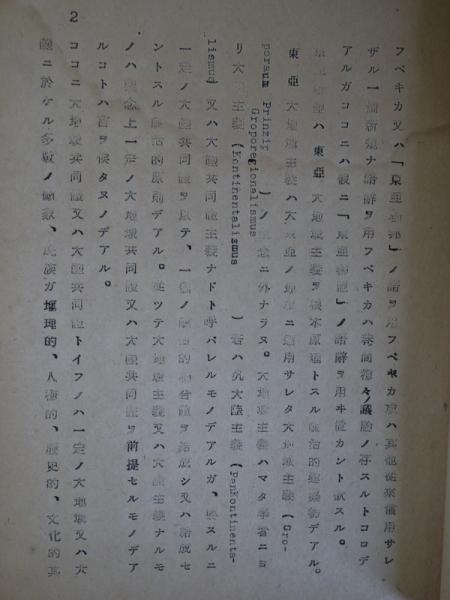 フベキカ又ハ「東亞聯邦」ノ語ヲ用フベキカ或ハ其他從來慣用サレ
ザル一種新規ナ語辭ヲ用フベキカハ世間種々ノ議論ノ存スルトコロデ
アルガココニハ假ニ「東亞聯盟」ノ語辭ヲ用ヰ置カント欲スル。
ハ東亞大地域主義ヲ根本原理トスル政治的構築物デアル。
東亞大地域主義ハ大東亞ノ地域ニ適用サレタ大地域主義(Gro-
porsum Prinzip
Groporegionalismus
)ノ ニ外ナラヌ。大地域主義ハマタ學者ニヨ
リ大陸主義(Kontinentalismus)若ハ汎大陸主義(Pankontinenta-
lismus)又ハ大陸共同體主義ナドト呼バレルモノデアルガ、要スルニ
一定ノ大陸共同體ヲ以テ、一個ノ政治的 ヲ結成シ又ハ結成セ
ントスル政治的原則デアル。從ツテ大地域主義又ハ大陸主義ナルモ
ノハ概念上一定ノ大地域共同體又ハ大陸共同體ヲ前提セルモノデア
ルコトハ言ヲ俟タヌノデアル。
ココニ大地域共同體又ハ大陸共同體トイフノハ一定ノ大地域又ハ大
陸ニ於ケル多數ノ國家、民族ガ地理的、人種的、歴史的、文化的其
2